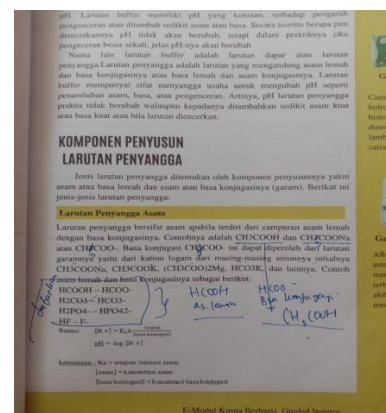 pH. Larutan buffer memiliki pH yang konstan, terhadap pengaruh
pengenceran atau ditambah sedikit asam atau basa. Secara teoritis berapa pun
diencerkannya pH tidak akan berubah, tetapi dalam praktiknya jika
pengeceran besar sekali, jelas pH-nya akan berubah
Nama lain larutan buffer adalah larutan dapar atau larutan
penyangga.Larutan penyangga adalah larutan yang mengandung asam lemah
dan basa konjugasinya atau basa lemah dan asam konjugasinya. Larutan
buffer mempunyai sifat menyangga usaha untuk mengubah pH seperti
penambahan asam, basa, atau pengenceran. Artinya, pH larutan penyangga
praktis tidak berubah walaupun kepadanya ditambahkan sedikit asam kuat
atau basa kuat atau bila larutan diencerkan.
KOMPONEN PENYUSUN
LARUTAN PENYANGGA
Jenis larutan penyangga ditentukan oleh komponen penyusunnya yakni
asam atau basa lemah dan asam atau basa konjugasinya (garam). Berikut ini
jenis-jenis larutan penyangga:
Larutan Penyangga Asam
Larutan penyangga bersifat asam apabila terdiri dari campuran asam lemah
dengan basa konjugasinya. Contohnya adalah CH3COOH dan CH3COONa
atau CH3COO-. Basa konjugasi CH3COO- ini dapat diperoleh dari larutan
garamnya yaitu dari kation logam dari masing-masing anionnya misalnya
CH3COONa, CH3COOK, (CH3COO)2Mg, HCO3K, dan lainnya. Contoh
asam lemah dan basa konjugasinya sebagai berikut:
HCOOH – HCOO-
H2CO3 – HCO3-
H2PO4- – HPO42-
HF – F-
HCOOH
as. lemah
HCOO-
CH3COOH
Rumus: [H +] = Ka x [asam]/[basa konjugasi]
pH = -log [H +]
Keterangan : Ka = tetapan ionisasi asam
[asam] = konsentrasi asam
[basa konjugasi] = konsentrasi basa konjugasi
E-Modul Kimia Berbasis Guided Inquiry